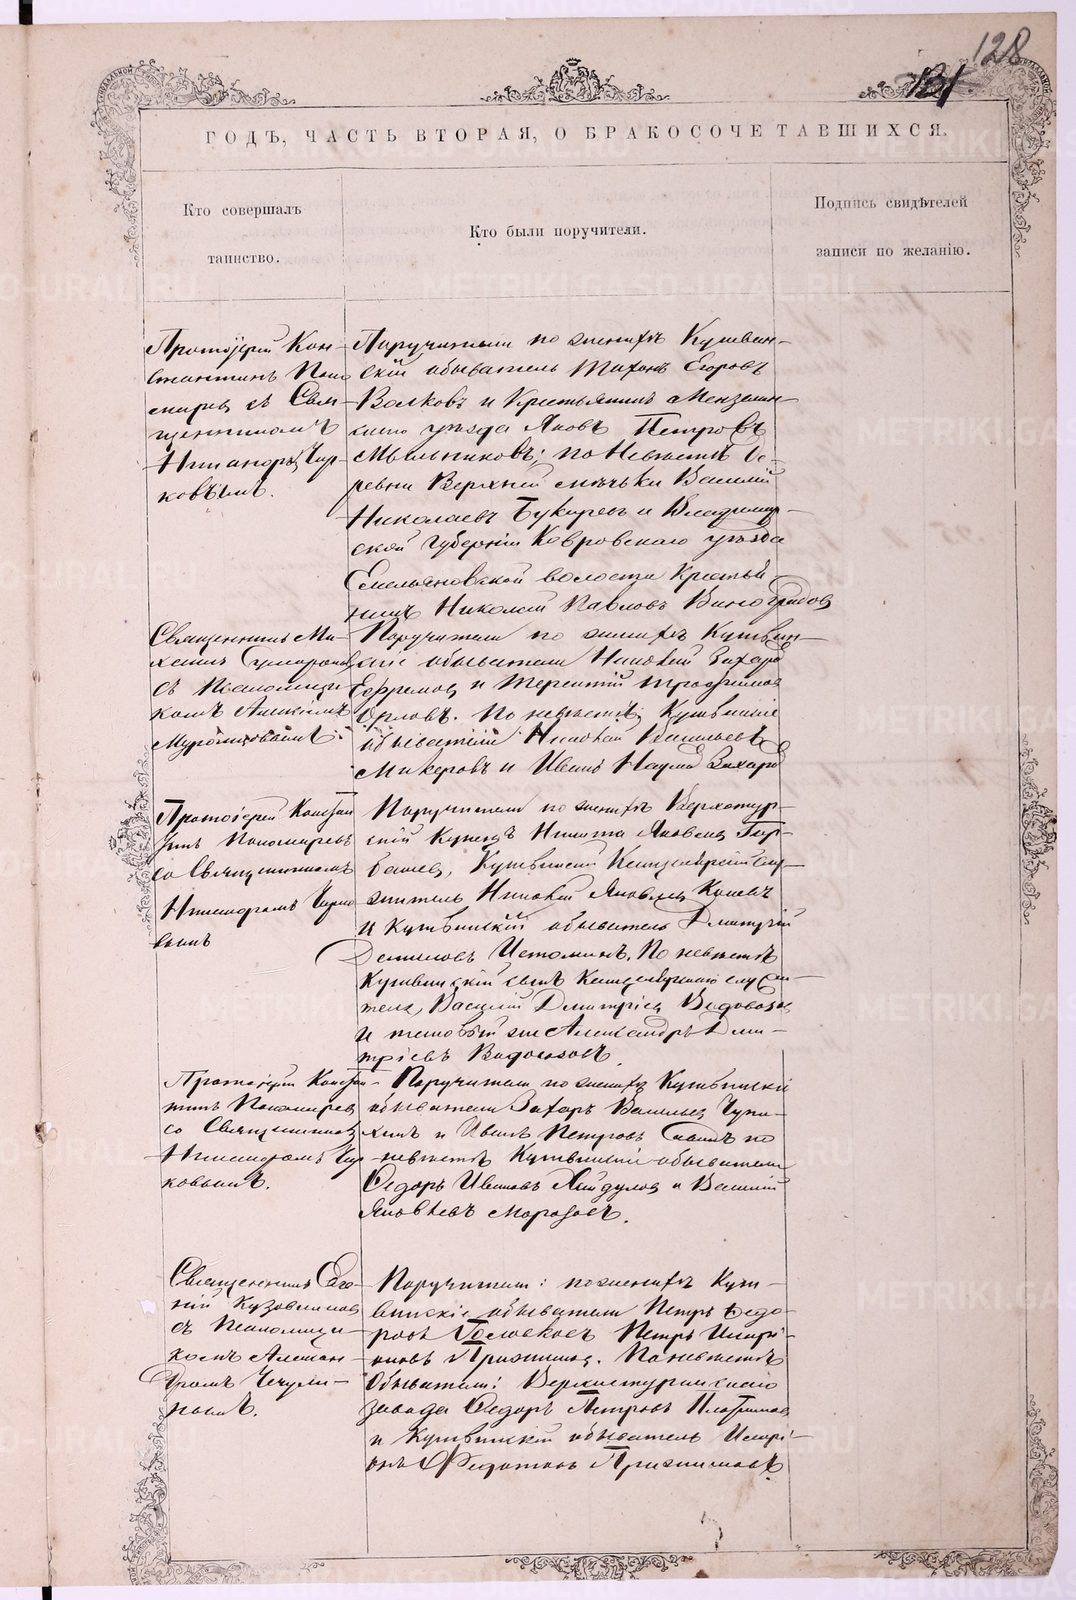 128
131
ГОДЪ, ЧАСТЬ ВТОРАЯ, О БРАКОСОЧЕТАВШИХСЯ.
Кто совершалъ
таинство.
Кто были поручители.
Подпись свидѣтелей
записи по желанію.
Протоіерей Кон-
стантинъ Поно
маревъ съ Свя-
щенникомъ
Никандромъ Чир-
ковымъ.
Поручители по женихѣ Кушвин-
скій обыватель Тихонъ Егоровъ
Волковъ и Крестьянинъ Мензелин-
скаго уѣзда Яковъ Петровъ
Мыльниковъ; по Невѣстѣ Де-
ревни Верхней Василій
Николаевъ Букиревъ и Владимір-
ской Губерніи Ковровскаго уѣзда
Емельяновской волости Крестья
нинъ Николай Павловъ Виноградов
Священникъ Ми-
хаилъ
съ Псаломщи
комъ Алексіемъ
Поручители по женихѣ Кушвин-
скіе обыватели Николай Захаров
Ефремовъ и Терентій Трофимов
Орловъ. По невѣстѣ Кушвинскіе
обыватели Николай Васильевъ
Микеровъ и Иванъ Наумовъ Захаров
Протоіерей Констан
тинъ Пономаревъ
со Священникомъ
Никандромъ Чирко
вымъ
Поручители по женихѣ Верхотур-
скій Купецъ Никита Яковлевъ Гор-
Кушвинскій Канцелярскій слу-
житель Николай Яковлевъ
и Кушвинскій обыватель Дмитрій
Даниловъ Истоминъ. По невѣстѣ
Кушвинскій сынъ Канцелярскаго служи-
теля, Василій Дмитріевъ Водовозов
и таковый же Александръ Дми-
тріевъ Водовозовъ.
Протоіерей Констан-
тинъ Пономаревъ
со Священникомъ
Никандромъ Чир
ковымъ.
Поручители по женихѣ Кушвинскіе
обыватели Захаръ Васильевъ Чупа-
хинъ и Иванъ Петровъ по
невѣстѣ Кушвинскіе обыватели
Ѳедоръ Ивановъ и Василій
Яковлевъ Морозовъ.
Священникъ Евге-
ній Кузовниковъ
съ Псаломщи-
комъ Алексан-
дромъ Чечули-
нымъ.
Поручители: по женихѣ Куш-
винскіе обыватели Петръ Ѳедо-
ровъ Петръ Иларі-
оновъ По невѣстѣ
Обыватели: Верхнетуринскаго
завода Ѳедоръ Петровъ
и Кушвинскій обыватель Иларі-
онъ Федотовъ